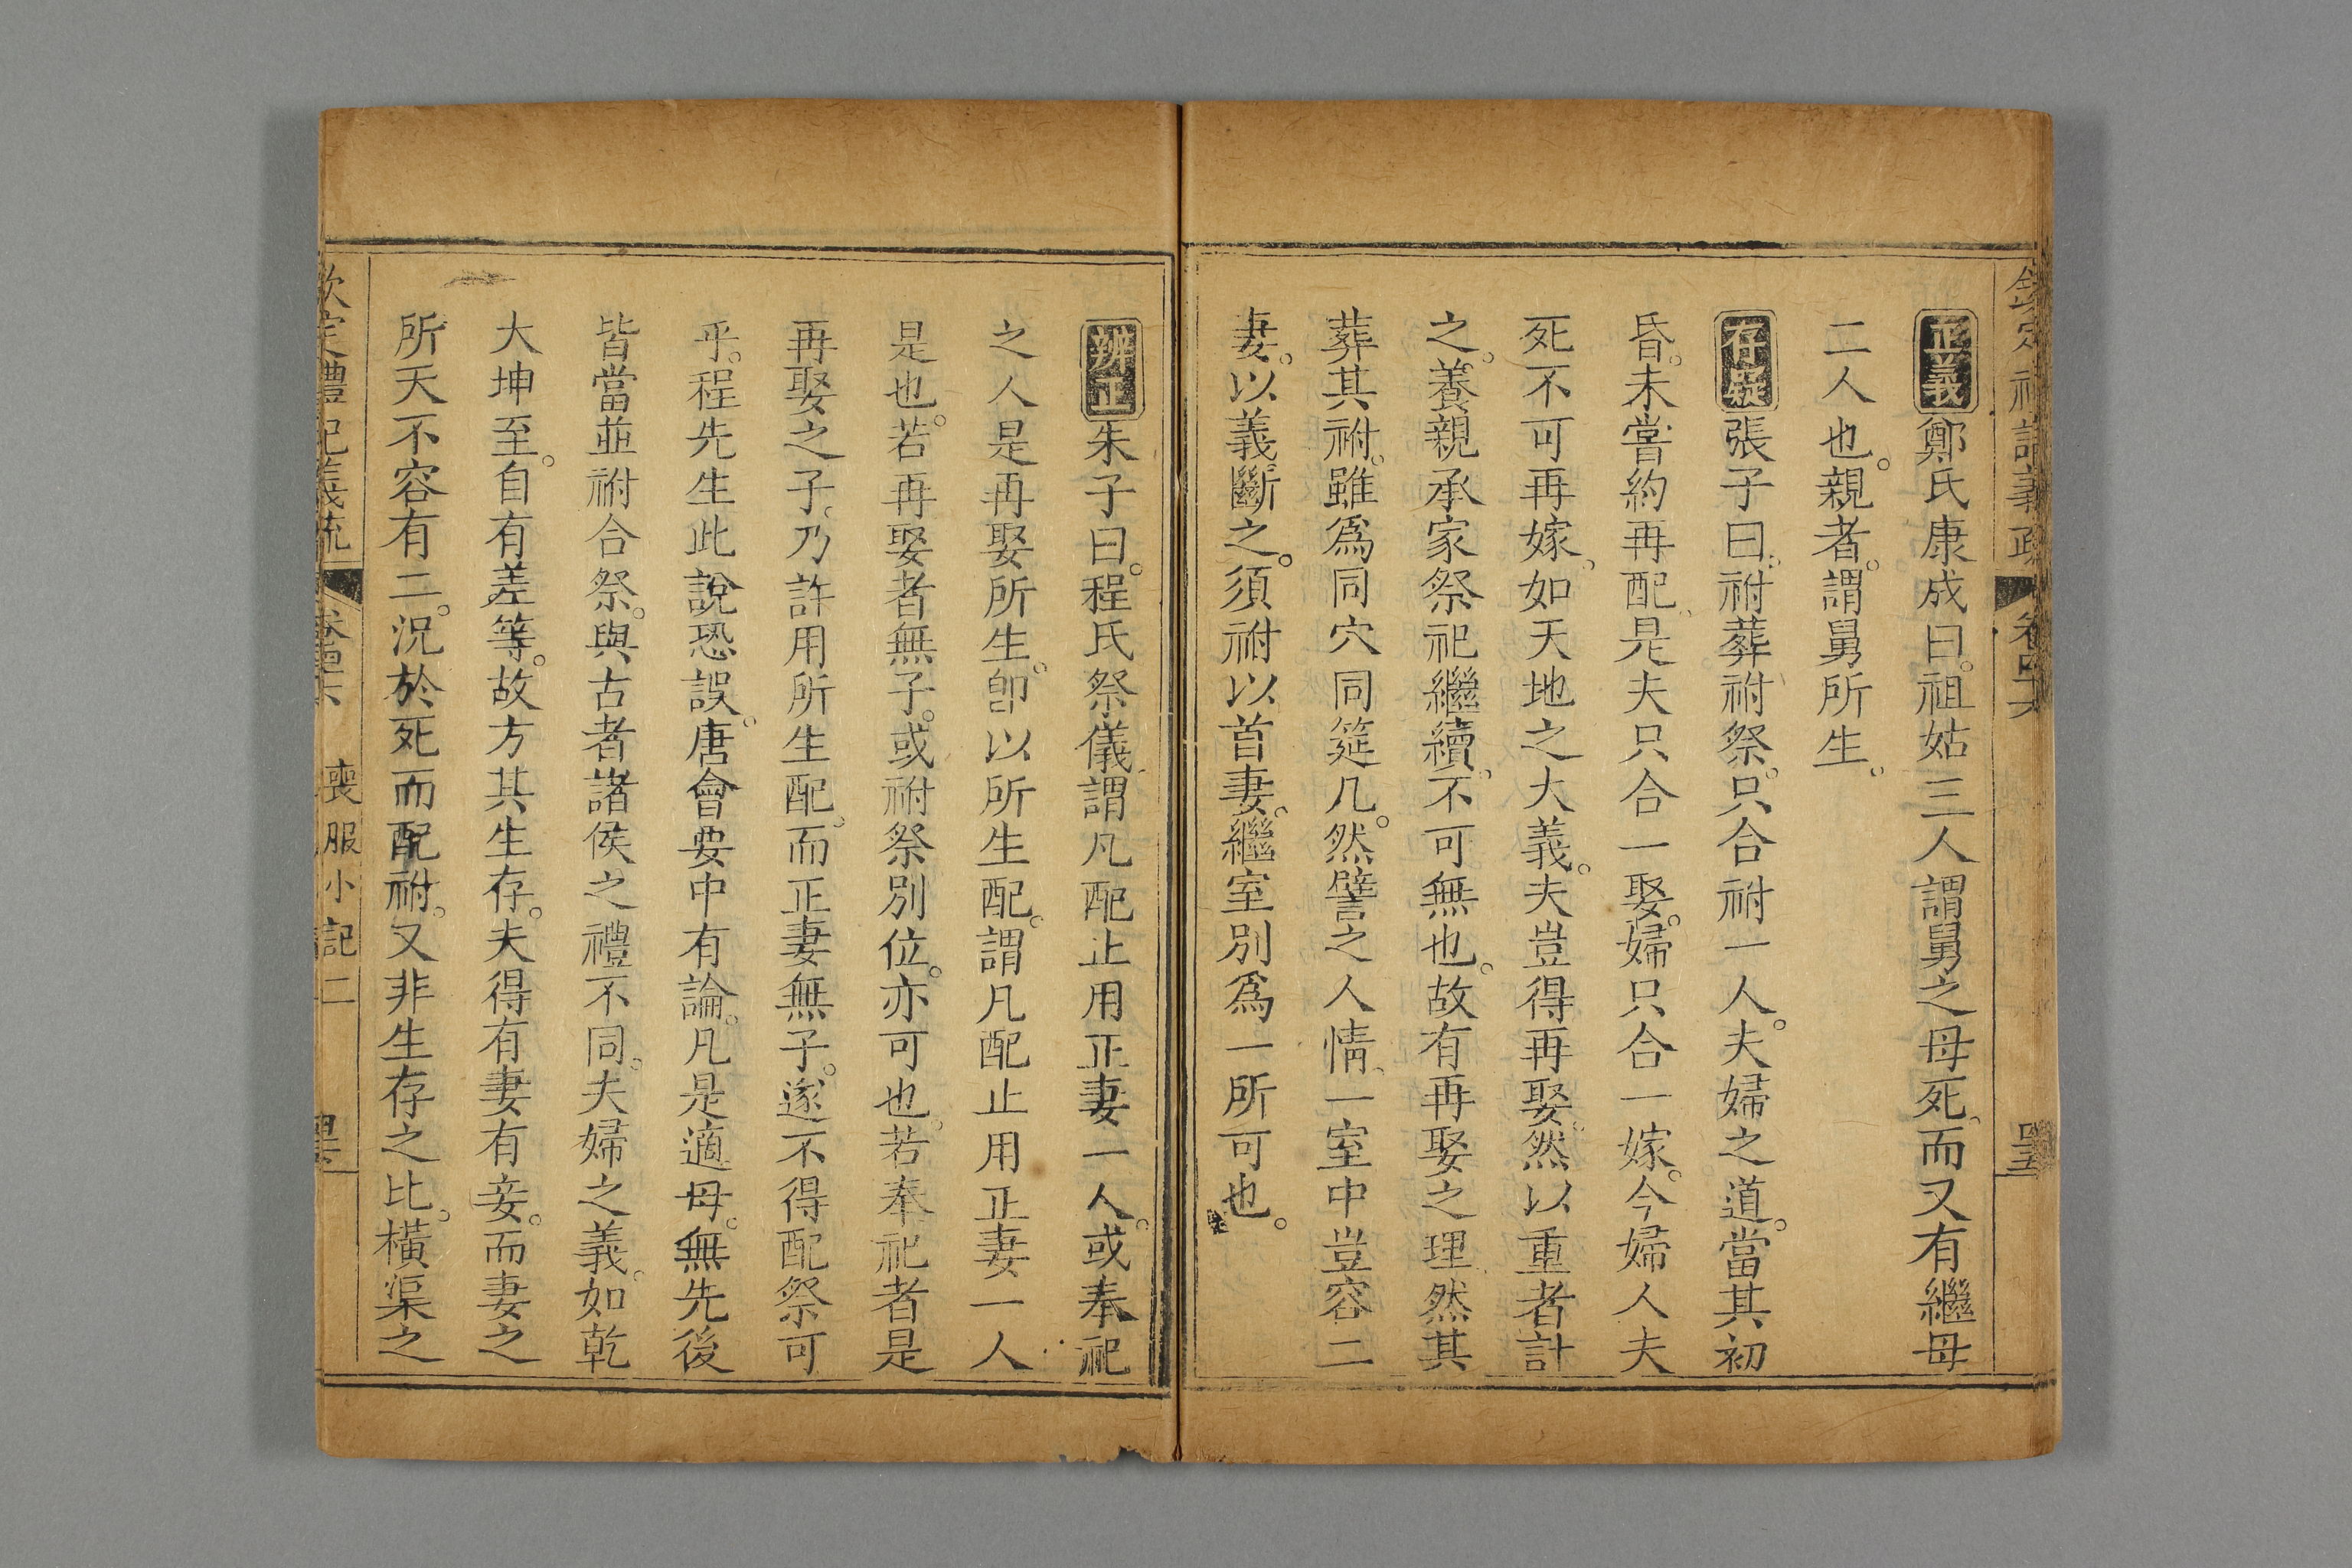 正義鄭氏康成曰。祖姑三人謂舅之母死、而又有繼母
二人也。親者。謂舅所生。
存疑張子曰。祔葬祔祭。只合祔一人。夫婦之道。當其初
昏。未嘗約再配、是夫只合一娶。婦只合一嫁。今婦人夫
死不可再嫁、如天地之大義。夫豈得再娶。然以重者計
之。養親承家祭祀繼續。不可無也。故有再娶之理然其
葬其祔。雖爲同穴同筵几。然譬之人情、一室中豈容二
妻。以義斷之。須祔以首妻。繼室別爲一所可也。
辨正朱子曰。程氏祭儀謂凡配止用正妻一人。或奉祀
之人是再娶所生。卽以所生配。謂凡配止用正妻一人
是也。若再娶者無子。或祔祭別位。亦可也。若奉祀者是
再娶之子。乃許用所生配。而正妻無子。遂不得配祭可
乎。程先生此說恐誤。唐會要中有論。凡是適母。無先後
皆當並祔合祭。與古者諸侯之禮不同。夫婦之義。如乾
大坤至。自有差等。故方其生存。夫得有妻有妾。而妻之
所天不容有二。況於死而配祔。又非生存之比。橫渠之
欽定禮記義疏 喪服小記二